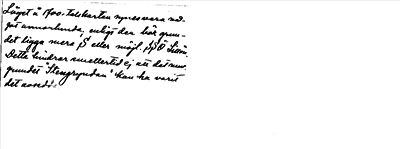 Läget å 1700-talskartan synes vara nå-
got annorlunda, enligt den bör grun-
det ligga mera S eller möjl. SSO
Detta hindrar emellertid ej att det nuv.
grundet "Stengryndan" kan ha varit
det avsedda